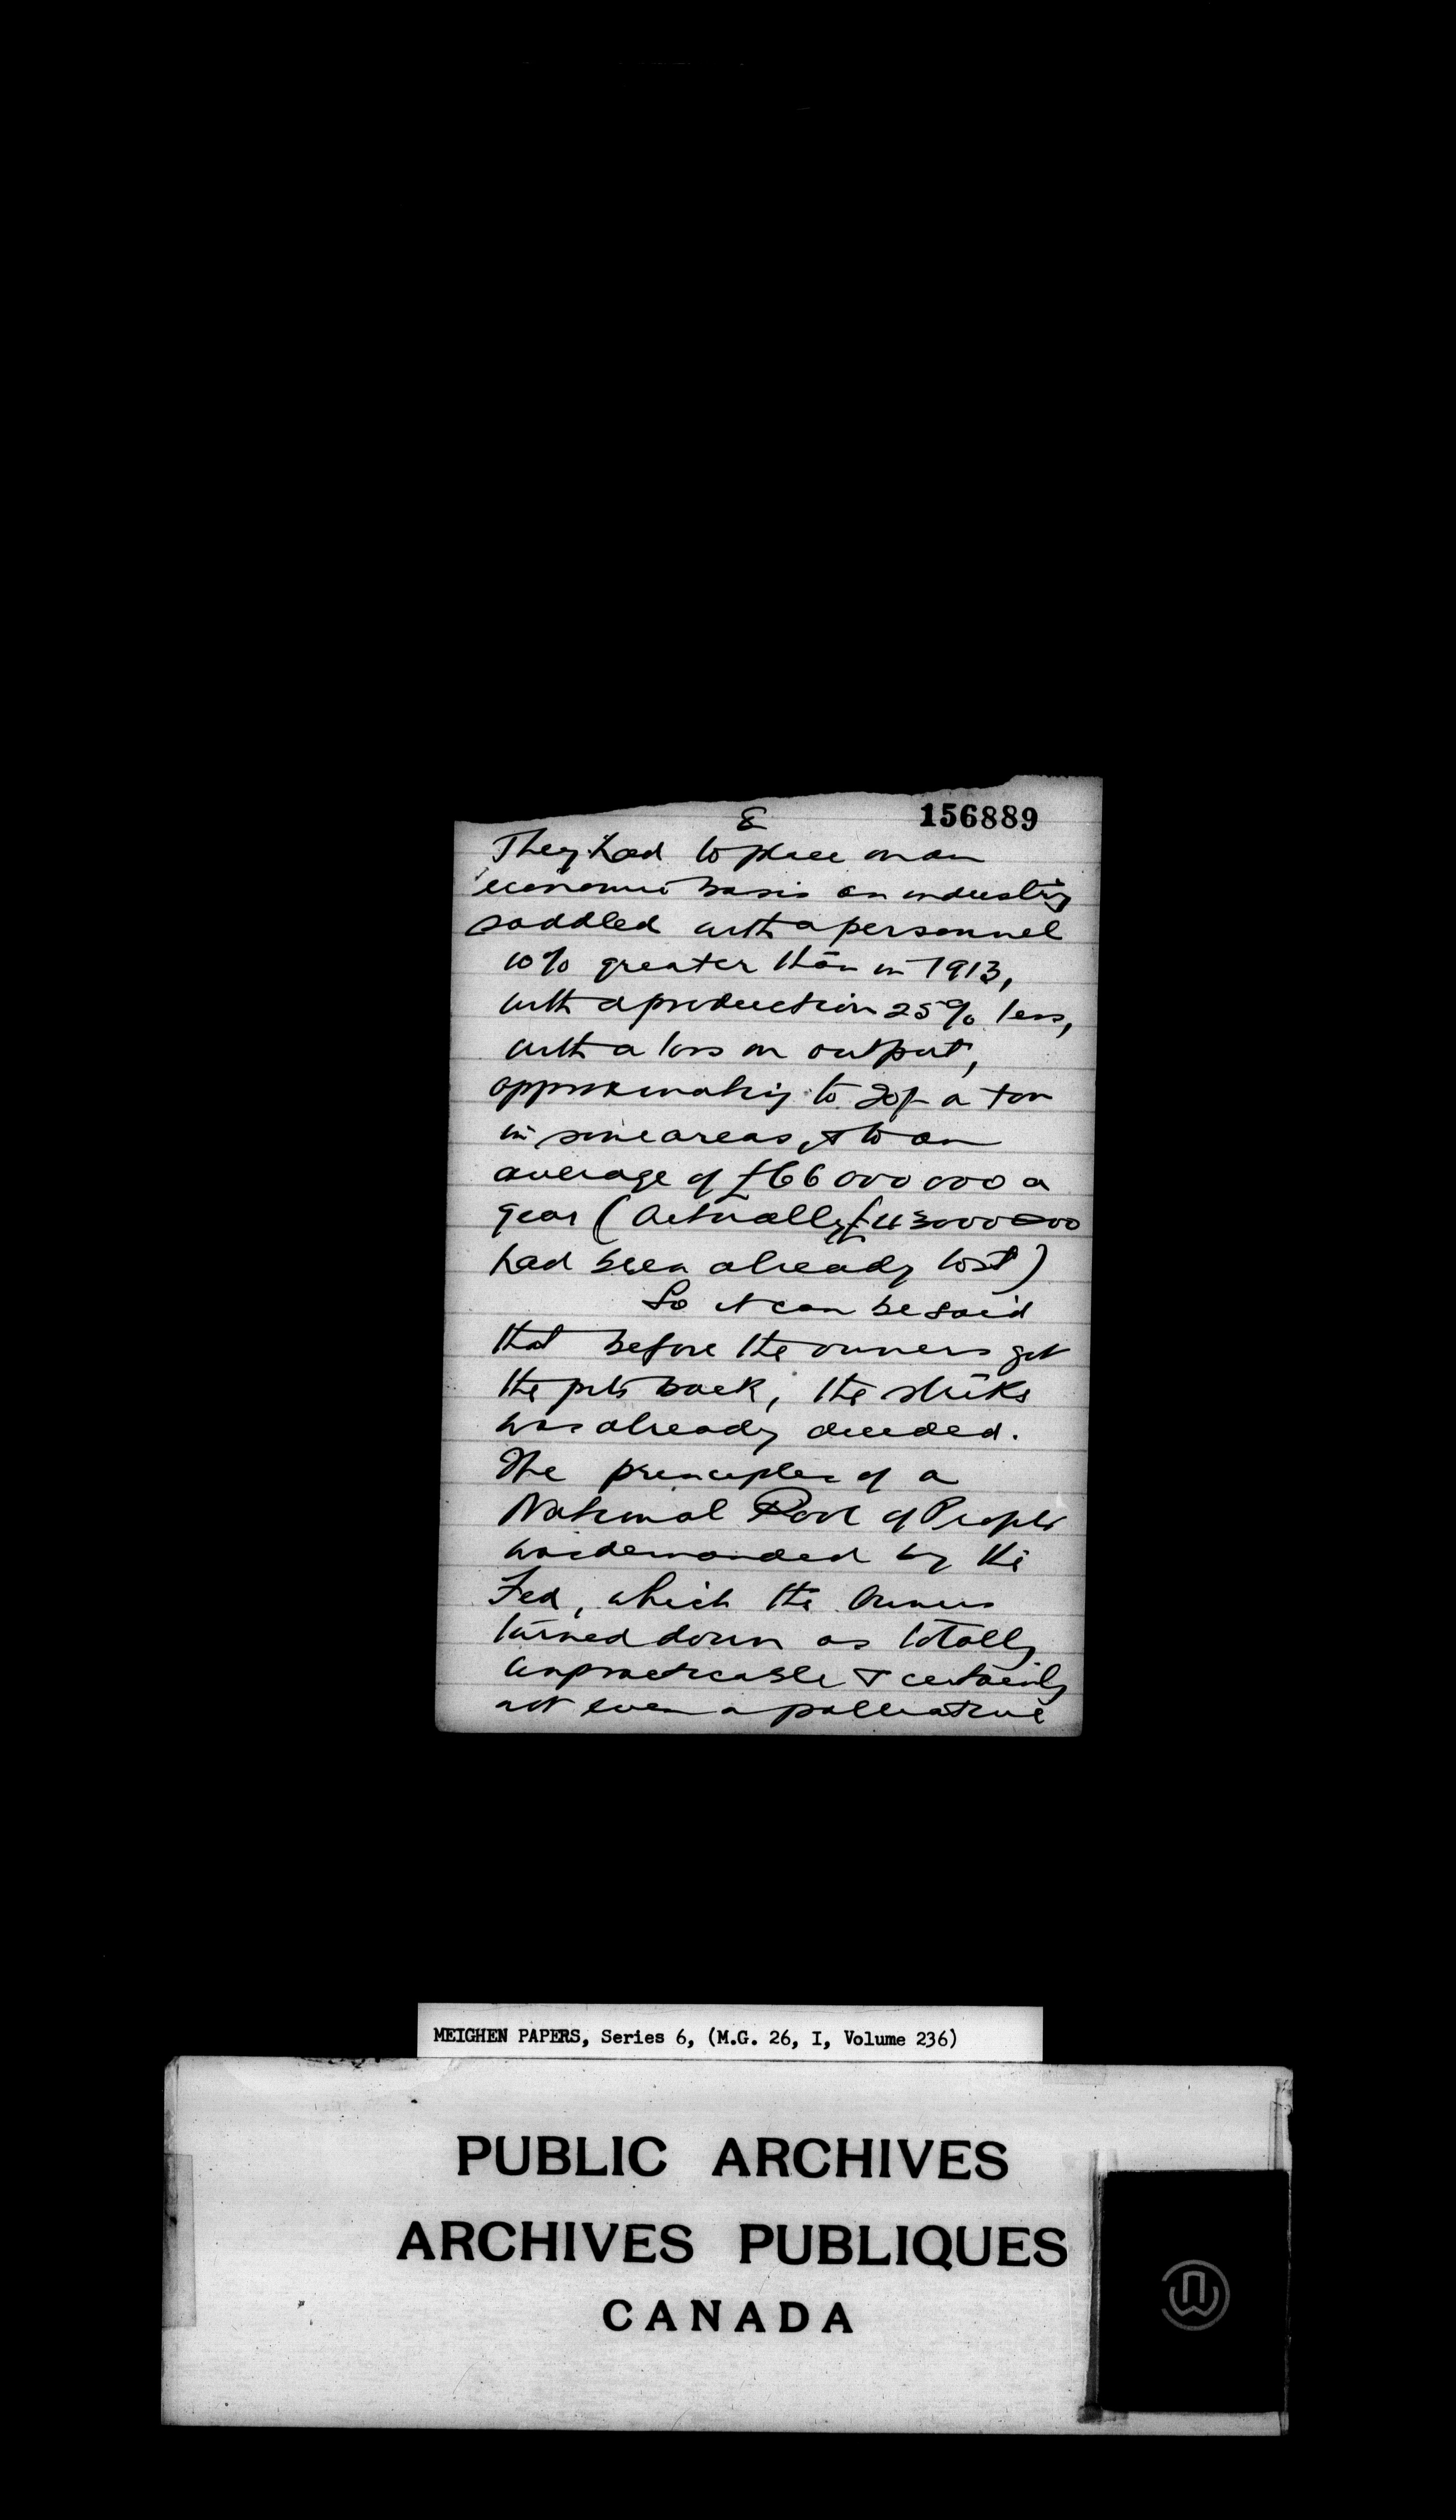 8 156889
They had to place on an
economic basis an industry
saddled with a personnel
10% greater than in 1913,
with a production 25% less,
with a loss on output,
approximating to 20/- a ton
in some areas, & to an
average of £66 000 000 a
year (Actually £43000000
had been already lost)
So it can be said
that before the owners got
the pits back, the strike
was already decided.
The principle of a
National Pool of Profits
was demanded by the
Fed, which the Owners
turned down as totally
unpracticable & certainly
not even a palliative
MEIGHEN PAPERS, Series 6, (M.G. 26, I, Volume 236)
PUBLIC ARCHIVES
ARCHIVES PUBLIQUES
CANADA